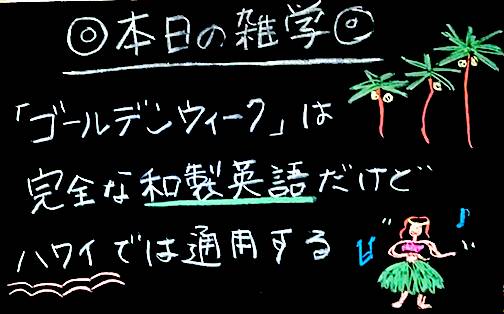 ◎本日の雑学◎
「ゴールデンウィーク」は
完全な和製英語だけど
ハワイでは通用する